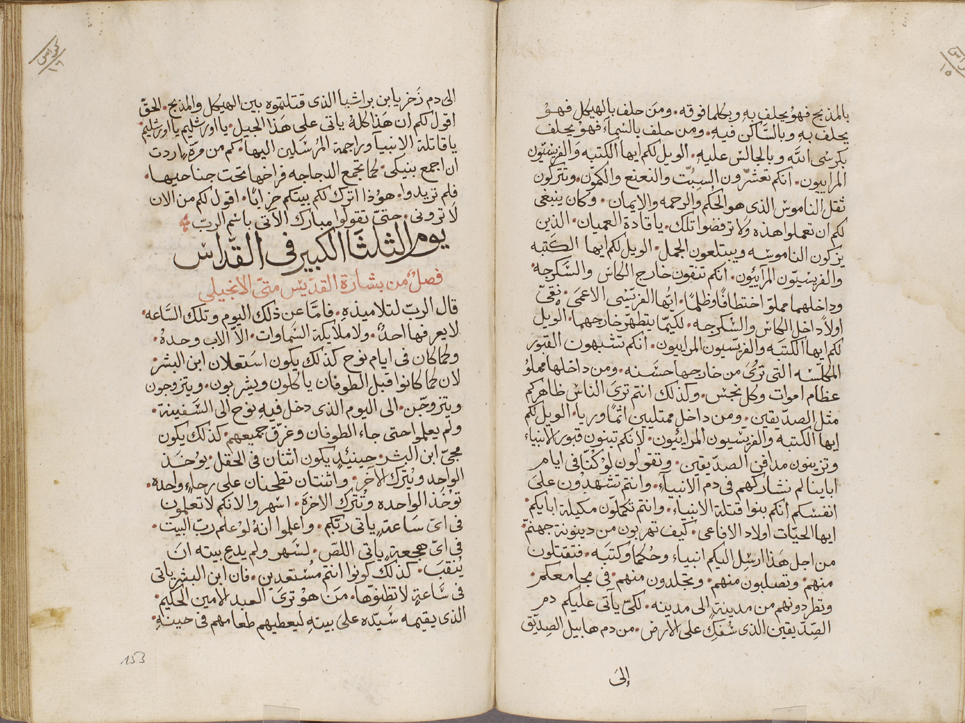 بالمذبح فهو يحلف به وبكلما فوقه ٠ ومن حلف بالهيكل فهو
يحلف به وبالساكن فيه ٠ ومن حلف بالسماء فهو يحلف
بكرسى الله وبالجالس عليه ٠ الويل لكم ايها الكتبه والفريسيون
المراييون ٠ انكم تعشرون السبت والنعنع والكمون ٠ وتتركون
ثقل الناموس الذى هو الحكم والرحمه والايمان ٠ وكان ينبغى
لكم ان تعملوا هذه ولا ترفضوا تلك ٠ يا قادة العميان ٠ الذين
يزكون الناموسه ويبتلعون الجمل ٠ الويل لكم ايها الكتبه
والفريسيون المراييون ٠ انكم تنقون خارج الجاس والسكرجه
وداخلهما مملو اختطافا وظلما ٠ ايها الفريسى الاعمى ٠ نقى
اولا داخل الجاس والسكرجه ٠ لكيما يتطهر خارجهما ٠ الويل
لكم ايها الكتبه والفريسيون المراييون ٠ انكم تشبهون القبور
المكلسه التى ترى من خارجها حسنه ٠ ومن داخلها مملوه
عظام اموات وكل نجس ٠ وكذلك انتم ترى الناس ظاهركم
مثل الصديقين ٠ ومن داخل ممتليين اثما وريا ٠ الويل لكم
ايها الكتبه والفريسيون المراييون ٠ لانكم تبنون قبور الانبياء
وتزينون مدافن الصديقين ٠ وتقولون لو كنا فى ايام
اباينا لم نشاركهم فى دم الانبياء ٠ وانتم تشهدون على
انفسكم انكم بنوا قتلة الانبياء ٠ وانتم تكملون مكيلة ابايكم
ايها الحيات اولاد الافاعى ٠ كيف تهربون من دينونة جهنم
من اجل هذا ارسل اليكم انبياء وحكما وكتبه ٠ فتقتلون
منهم ٠ وتصلبون منهم ٠ وتجلدون منهم ٠ فى مجامعكم ٠
وتطردونهم من مدينة الى مدينه ٠ لكى ياتى عليكم دم
الصديقين الذى سفك على الارض ٠ من دم هابيل الصديق
إلى
الى دم زخريا بن براشيا الذى قتلتموه بين الهيكل والمذبح ٠ الحق
اقول لكم ان هذا كله ياتى على هذا الجيل ٠ يا اورشليم يا اورشليم
يا قاتلة الانبيا وراجمة المرسلين اليها ٠ كم من مرة اردت
ان اجمع بنيكى ٠ كما تجمع الدجاجه فراخها تحت جناحيها ٠
فلم تريدوا ٠ هوذا اترك لكم بيتكم خرابا ٠ اقول لكم من الان
لا ترونى ٠ حتى تقولوا مبارك الاتى باسم الرب
يوم الثلثا الكبير فى القداس
فصل من بشارة القديس متى الانجيلى
قال الرب لتلاميذه ٠ فاما عن ذلك اليوم وتلك الساعه ٠
لا يعرفها احد ٠ ولا ملايكة السماوات ٠ الا الاب وحده ٠
وكما كان فى ايام نوح كذلك يكون استعلان ابن البشر
لان كما كانوا قبل الطوفان ياكلون ويشربون ٠ ويتزوجون
ويتزوجن ٠ الى اليوم الذى دخل فيه نوح الى السفينة ٠
ولم يعلموا حتى جاء الطوفان وغرق جميعهم ٠ كذلك يكون
مجى ابن البشر ٠ حينيذ يكون اثنان فى الحقل يوخذ
الواحد ويترك الاخر ٠ واثنتان تطحنان على رحا واحده ٠
توخذ الواحده وتترك الاخرة ٠ اسهروا لانكم لا تعلمون
فى اى ساعة ياتى ربكم ٠ واعلموا انه لو علم رب البيت ٠
فى اى هجعة ياتى اللص ٠ لسهر ولم يدع بيته ان
ينقب ٠ كذلك كونوا انتم مستعدين ٠ فان ابن البشر ياتى
فى ساعة لا تظنوها ٠ من هو ترى العبد الامين الحكيم ٠
الذى يقيمه سيده على بيته ليعطيهم طعامهم فى حينه ٠
153